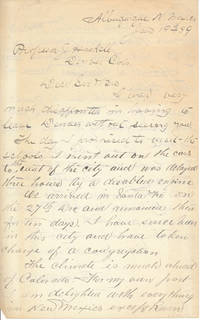 Albuquerque N. Mexico
Jan 19th 99
Professor
Denver Colo
Dear Sir & Bro
I was very
much disappointed in having to
leave Denver without seeing you
The day I promised to visit the
schools I went out on the car
to the east of the city and was delayed
three hours by a disabled engine
We arrived in Santa Fe
the 27th Dec and remained there
for ten days. I have since been
in this city and have taken
charge of a congregation
The climate is much ahead
of Colorado. For my own part
I am delighted with everything
in New Mexico except